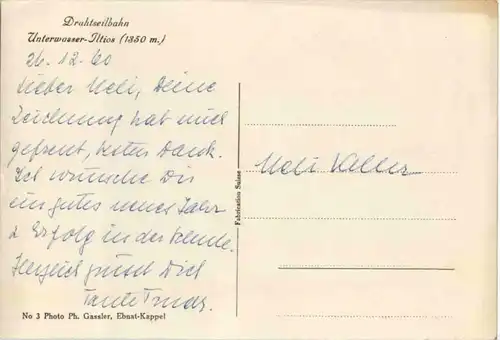 Drahtseilbahn
Unterwasser-Iltios (1350 m.)
26.12.60
Lieber Ueli, Deine
Zeichnung hat mich
gefreut, besten Dank.
Ich wünsche Dir
ein gutes neues Jahr
& Erfolg in der Schule.
Herzlich grüsst Dich
Tante
Ueli Keller
Fabrication Suisse
No 3 Photo Ph. Gassler, Ebnat-Kappel